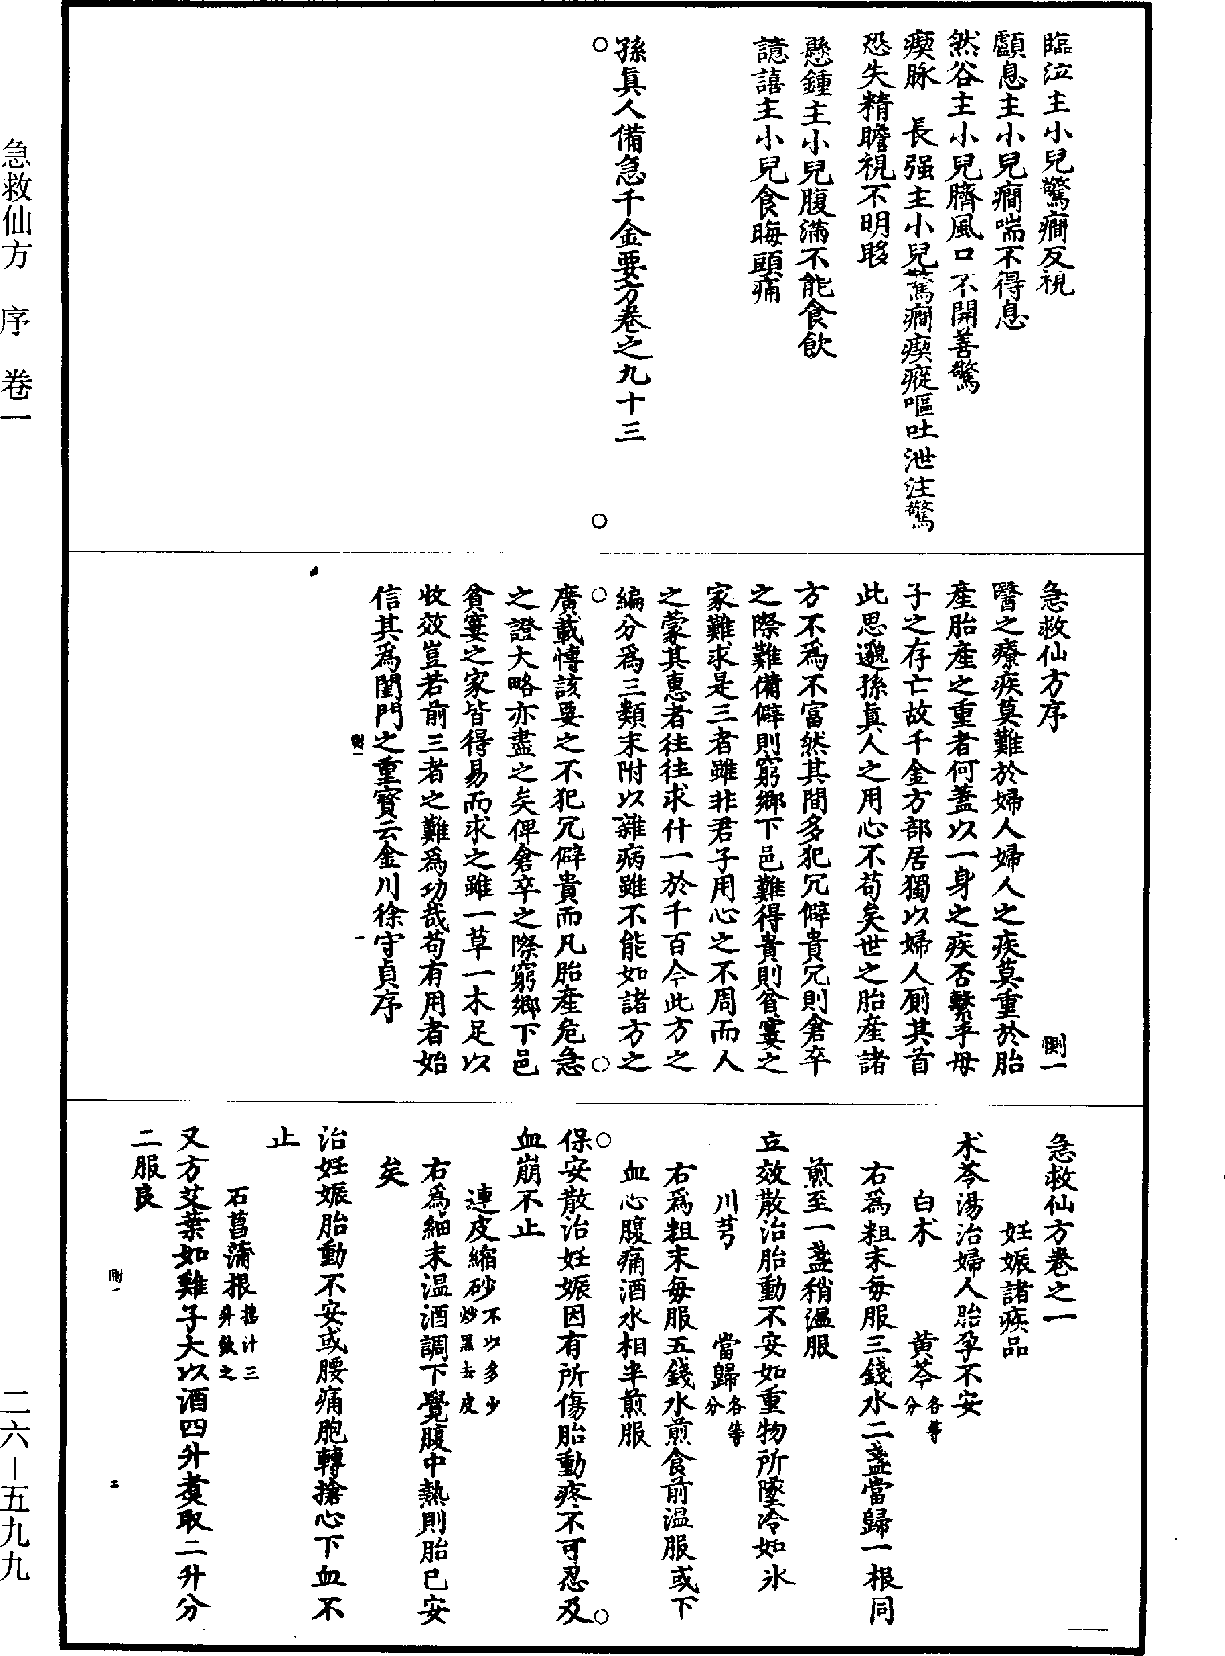 臨泣主小兒驚癎反視
顱息主小兒癎喘不得息
然谷主小兒臍風口不開善驚
瘈脉　長强主小兒驚癎瘈瘲嘔吐泄注驚
恐失精瞻視不明眵
懸鍾主小兒腹滿不能食飲
譩譆主小兒食晦頭痛
孫眞人備急千金要方卷之九十三
急救仙方序　惻一
醫之療疾莫難於婦人婦人之疾莫重於胎
產胎產之重者何蓋以一身之疾否繫乎母
子之存亡故千金方部居獨以婦人厠其首
此思邈孫眞人之用心不苟矣世之胎產諸
方不爲不富然其間多犯冗僻貴冗則倉卒
之際難備僻則窮鄉下邑難得貴則貧窶之
家難求是三者雖非君子用心之不周而人
之蒙其惠者往往求什一於千百今此方之
編分爲三類末附以雜病雖不能如諸方之
廣載博該要之不犯冗僻貴而凡胎產危急
之證大略亦盡之矣俾倉卒之際窮鄉下邑
貧窶之家皆得易而求之雖一草一木足以
收效豈若前三者之難爲功哉苟有用者始
信其爲閨門之重寳云金川徐守貞序
惻一　一
急救仙方卷之一
妊娠諸疾品
术芩湯治婦人胎孕不安
白术　黄芩各等分
右爲粗末每服三錢水二盞當歸一根同
煎至一盞稍溫服
立效散治胎動不安如重物所墜冷如氷
川芎　當歸各等分
右爲粗末每服五錢水煎食前溫服或下
血心腹痛酒水相半煎服
保安散治妊娠因有所傷胎動疼不可忍及
血崩不止
連皮縮砂不以多少炒黑去皮
右爲細末温酒調下覺腹中熱則胎已安
矣
治妊娠胎動不安或腰痛胞轉搶心下血不
止
石菖蒲根搗汁三升飲之
又方艾葉如雞子大以酒四升煑取二升分
二服良
惻一　二
急救仙方　序　卷一
二六—五九九